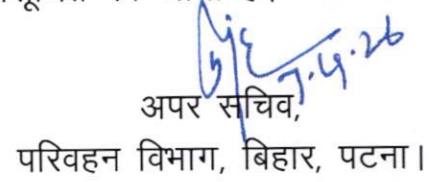 7.4.26
अपर सचिव,
परिवहन विभाग, बिहार, पटना।